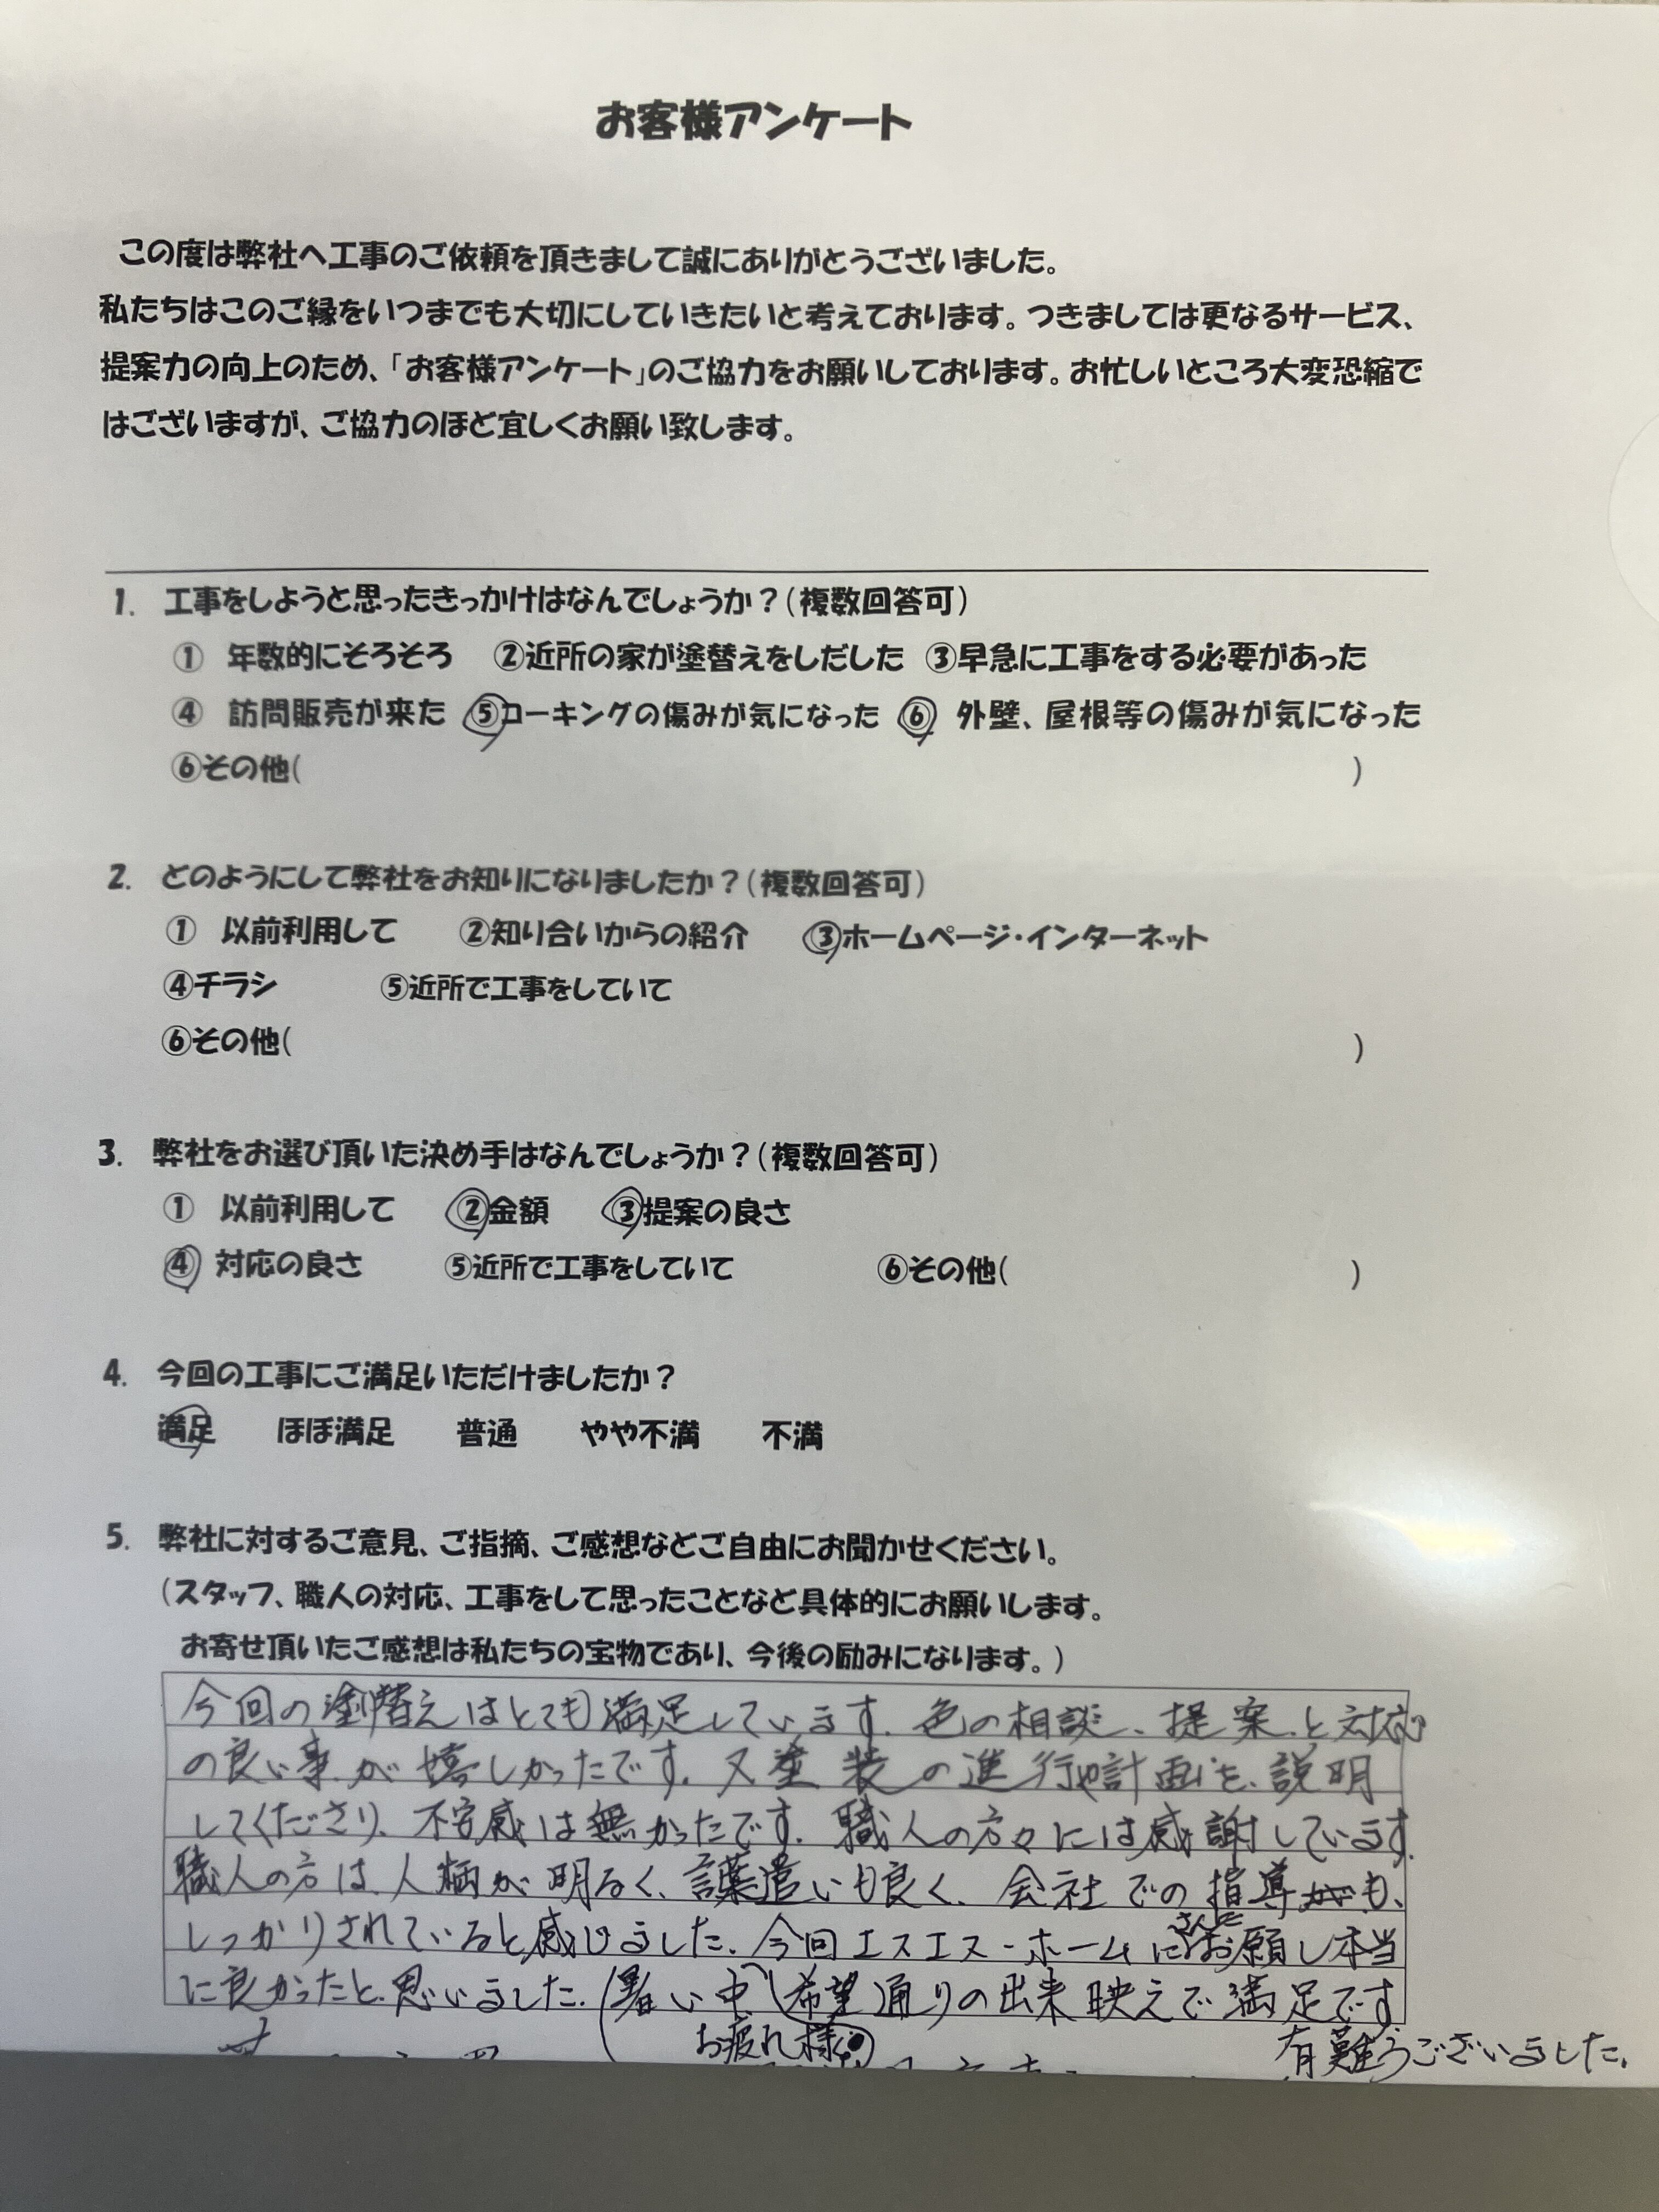 お客様アンケート
この度は弊社へ工事のご依頼を頂きまして誠にありがとうございました。
私たちはこのご縁をいつまでも大切にしていきたいと考えております。つきましては更なるサービス、
提案力の向上のため、「お客様アンケート」のご協力をお願いしております。お忙しいところ大変恐縮で
はございますが、ご協力のほど宜しくお願い致します。
1. 工事をしようと思ったきっかけはなんでしょうか？(複数回答可)
① 年数的にそろそろ ②近所の家が塗替えをしだした ③早急に工事をする必要があった
④ 訪問販売が来た ⑤コーキングの傷みが気になった ⑥ 外壁、屋根等の傷みが気になった
⑥その他( )
2. どのようにして弊社をお知りになりましたか？(複数回答可)
① 以前利用して ②知り合いからの紹介 ③ホームページ・インターネット
④チラシ ⑤近所で工事をしていて
⑥その他( )
3. 弊社をお選び頂いた決め手はなんでしょうか？(複数回答可)
① 以前利用して ②金額 ③提案の良さ
④ 対応の良さ ⑤近所で工事をしていて ⑥その他( )
4. 今回の工事にご満足いただけましたか？
満足 ほぼ満足 普通 やや不満 不満
5. 弊社に対するご意見、ご指摘、ご感想などご自由にお聞かせください。
(スタッフ、職人の対応、工事をして思ったことなど具体的にお願いします。
お寄せ頂いたご感想は私たちの宝物であり、今後の励みになります。)
今回の塗替えはとても満足しています。色の相談、提案と対応
の良い事が嬉しかったです。又塗装の進行や計画を、説明
してくださり、不安感は無かったです。職人の方々には感謝しています。
職人の方は、人柄が明るく、言葉遣いも良く、会社での指導も、
しっかりされていると感じました。今回エスエス-ホームさんにお願し本当
に良かったと思いました。(暑い中、希望通りの出来映えで満足です
お疲れ様)
有難うございました。